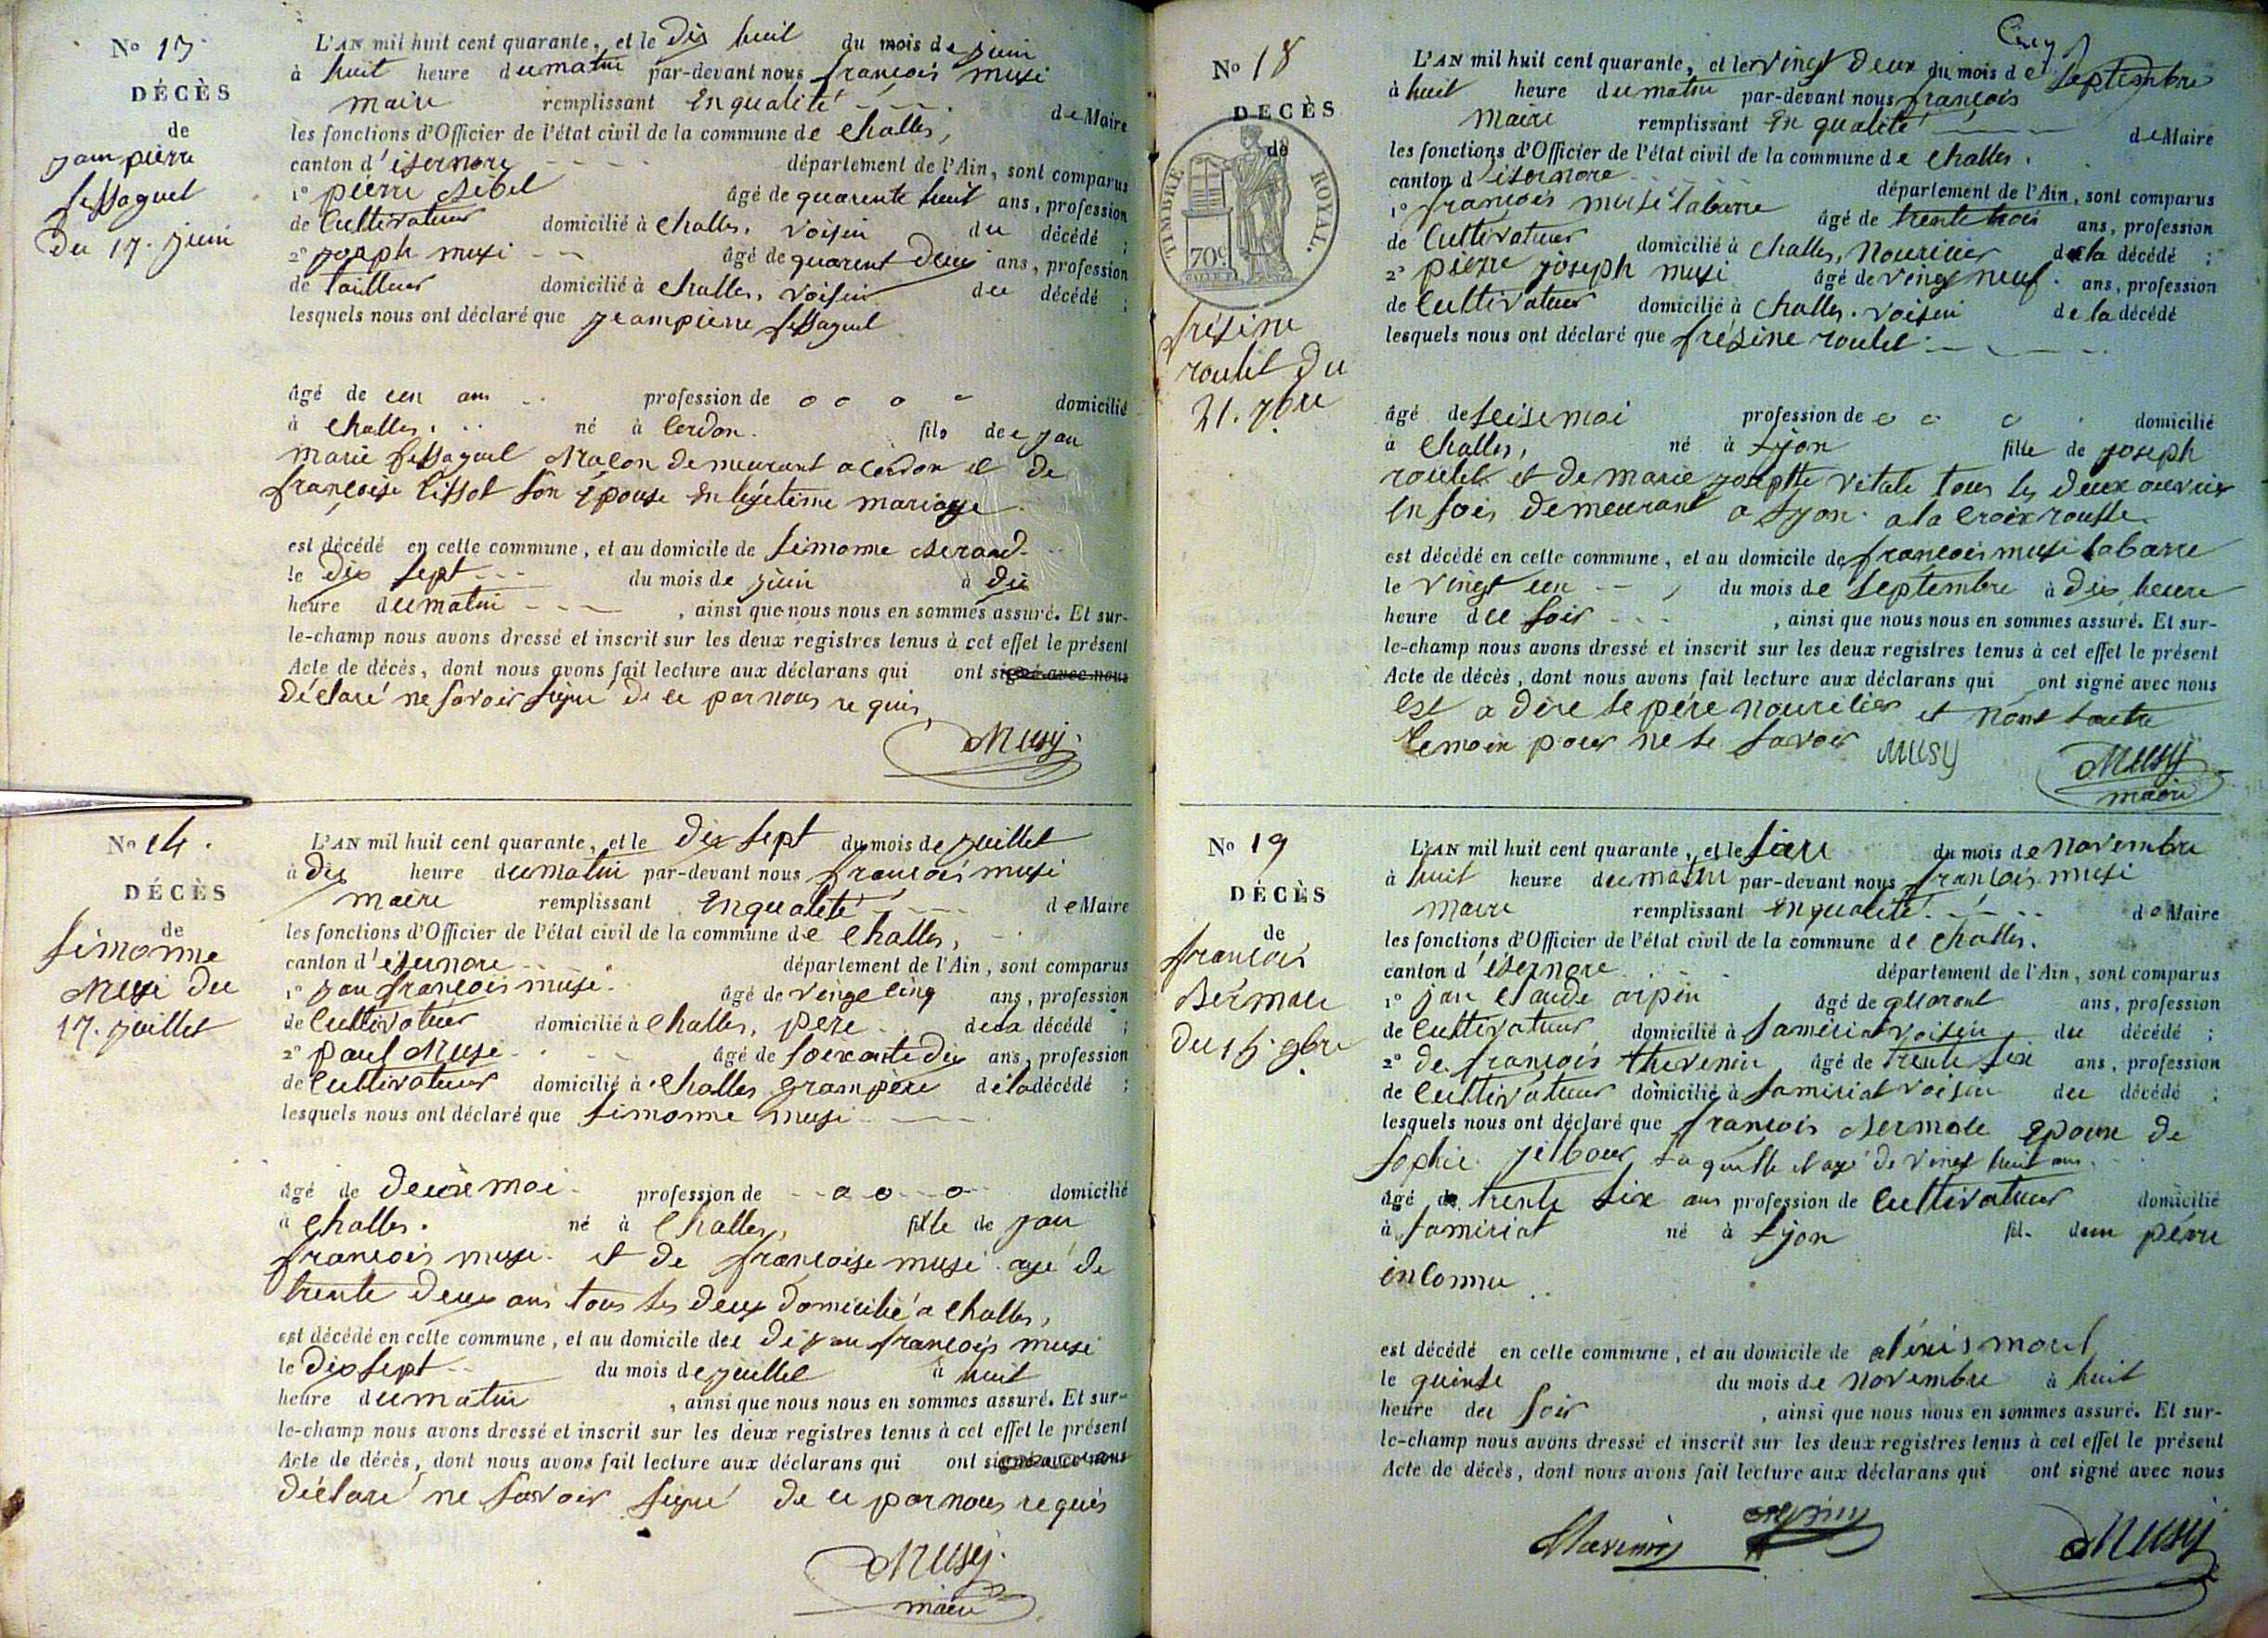 No 13
DÉCÈS
de
jean pierre
fessaguet
Du 17. juin
L'AN mil huit cent quarante, et le Dix huit du mois de juin
à huit heure du matin par-devant nous françois musi
maire remplissant En qualité de Maire
les fonctions d'Officier de l'état civil de la commune de Challes,
canton d'isernore département de l'Ain, sont comparus
1° pierre âgé de quarente huit ans, profession
de Cultivateur domicilié à Challes, voisin du décédé ;
2° joseph musi âgé de quarent Deux ans, profession
de tailleur domicilié à Challes, voisin du décédé ;
lesquels nous ont déclaré que jeanpierre fessaguet
âgé de un ans profession de domicilié
à Challes. né à Cerdon. fils de jean
marie fessaguet Maçon demeurant a Cerdon et de
françoise tissot son Epouse En légetime mariage.
est décédé en cette commune, et au domicile de simonne
le Dix sept du mois de juin à dix
heure du matin, ainsi que nous nous en sommes assuré. Et sur-
le-champ nous avons dressé et inscrit sur les deux registres tenus à cet effet le présent
Acte de décès, dont nous avons fait lecture aux déclarans qui ont signé avec nous
Déclaré ne savoir signé de ce par nous requis
Musy
No 14.
DÉCÈS
de
simonne
Musi Du
17. juillet
L'AN mil huit cent quarante, et le Dix sept du mois de juillet
à dix heure du matin par-devant nous françois musi
maire remplissant En qualité de Maire
les fonctions d'Officier de l'état civil de la commune de Challes,
canton d'isernore département de l'Ain, sont comparus
1° jean françois musi. âgé de vingt cinq ans, profession
de Cultivateur domicilié à Challes, pere de la décédé ;
2° paul Musi âgé de soixante dix ans, profession
de Cultivateur domicilié à Challes grampère de la décédé ;
lesquels nous ont déclaré que simonne musi
âgé de deuxe moi profession de domicilié
à Challes. né à Challes, fille de jean
francois musi et de françoise musi agé de
trente Deux ans tous les deux domicilié a Challes,
est décédé en cette commune, et au domicile de De jean françois musi
le Dix sept du mois de juillet à huit
heure du matin, ainsi que nous nous en sommes assuré. Et sur-
le-champ nous avons dressé et inscrit sur les deux registres tenus à cet effet le présent
Acte de décès, dont nous avons fait lecture aux déclarans qui ont signé avec nous
Déclaré ne savoir signé de ce par nous requis
Musy
maire
No 18
DECÈS
de
TIMBRE ROYAL.
70c
frésine
roulet Du
21. 7bre
L'AN mil huit cent quarante, et le vingt Deux du mois de Septembre
à huit heure du matin par-devant nous françois
maire remplissant En qualité de Maire
les fonctions d'Officier de l'état civil de la commune de Challes.
canton d'isernore département de l'Ain, sont comparus
1° françois musi labarre âgé de trente trois ans, profession
de Cultivateur domicilié à Challes, Nouricier de la décédé ;
2° pierre joseph musi âgé de vingt neuf ans, profession
de Cultivateur domicilié à Challes. voisin de la décédé
lesquels nous ont déclaré que frésine roulet
âgé de seise moi profession de domicilié
à Challes, né à Lyon fille de joseph
roulet et de marie josephte vitale tous les deux ouvrier
En soie demeurant a Lyon. a la Croix rousse.
est décédé en cette commune, et au domicile de francois musi labarre
le vingt un du mois de Septembre à dix heure
heure du soir, ainsi que nous nous en sommes assuré. Et sur-
le-champ nous avons dressé et inscrit sur les deux registres tenus à cet effet le présent
Acte de décès, dont nous avons fait lecture aux déclarans qui ont signé avec nous
Est a dire le père nouricier et nont lautre
temoin pour ne le savoir MUSY Musy
maire
No 19
DÉCÈS
de
francois
Dermole
Du 15. 9bre
L'AN mil huit cent quarante, et le sieu du mois de Novembre
à huit heure du matin par-devant nous francois musi
maire remplissant En qualité de Maire
les fonctions d'Officier de l'état civil de la commune de Challes.
canton d'isernore département de l'Ain, sont comparus
1° jean Claude arpin âgé de quarant ans, profession
de Cultivateur domicilié à Samériat voisin du décédé ;
2° de françois thevenin âgé de trente six ans, profession
de Cultivateur domicilié à Samiriat voisin du décédé ;
lesquels nous ont déclaré que françois Dermole Epoux de
sophie laquelle et agé de vingt huit ans.
âgé de trente six ans profession de Cultivateur domicilié
à Samiriat né à Lyon fil. dun père
inconnu
est décédé en cette commune, et au domicile de morel
le quinse du mois de Novembre à huit
heure du soir, ainsi que nous nous en sommes assuré. Et sur-
le-champ nous avons dressé et inscrit sur les deux registres tenus à cet effet le présent
Acte de décès, dont nous avons fait lecture aux déclarans qui ont signé avec nous
Musy